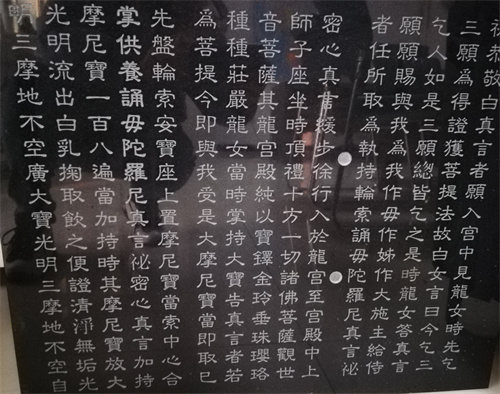 恭敬白真言者願入宮中見龍女時先乞
三願爲得證獲菩提法故白女言曰今乞三
乞人如是三願總皆乞之是時龍女答真言
願願賜與我爲我作毋作姊作大施主給侍
者任所取爲執持輪索誦毋陀羅尼真言祕
密心真言緩步徐行入於龍宮至宮殿中上
師子座坐時頂禮十方一切諸佛菩薩觀世
音菩薩其龍宮殿純以寶鐸金玲垂珠瓔珞
種種莊嚴龍女當時掌持大寶告真言者若
爲菩提今即與我受是大摩尼寶當即取已
先盤輪索安寶座上置摩尼寶當索中心合
掌供養誦毋陀羅尼真言祕密心真言加持
摩尼寶一百八遍當加持時其摩尼寶放大
光明流出白乳掬取飲之便證清淨無垢光
明三摩地不空廣大寶光明三摩地不空自